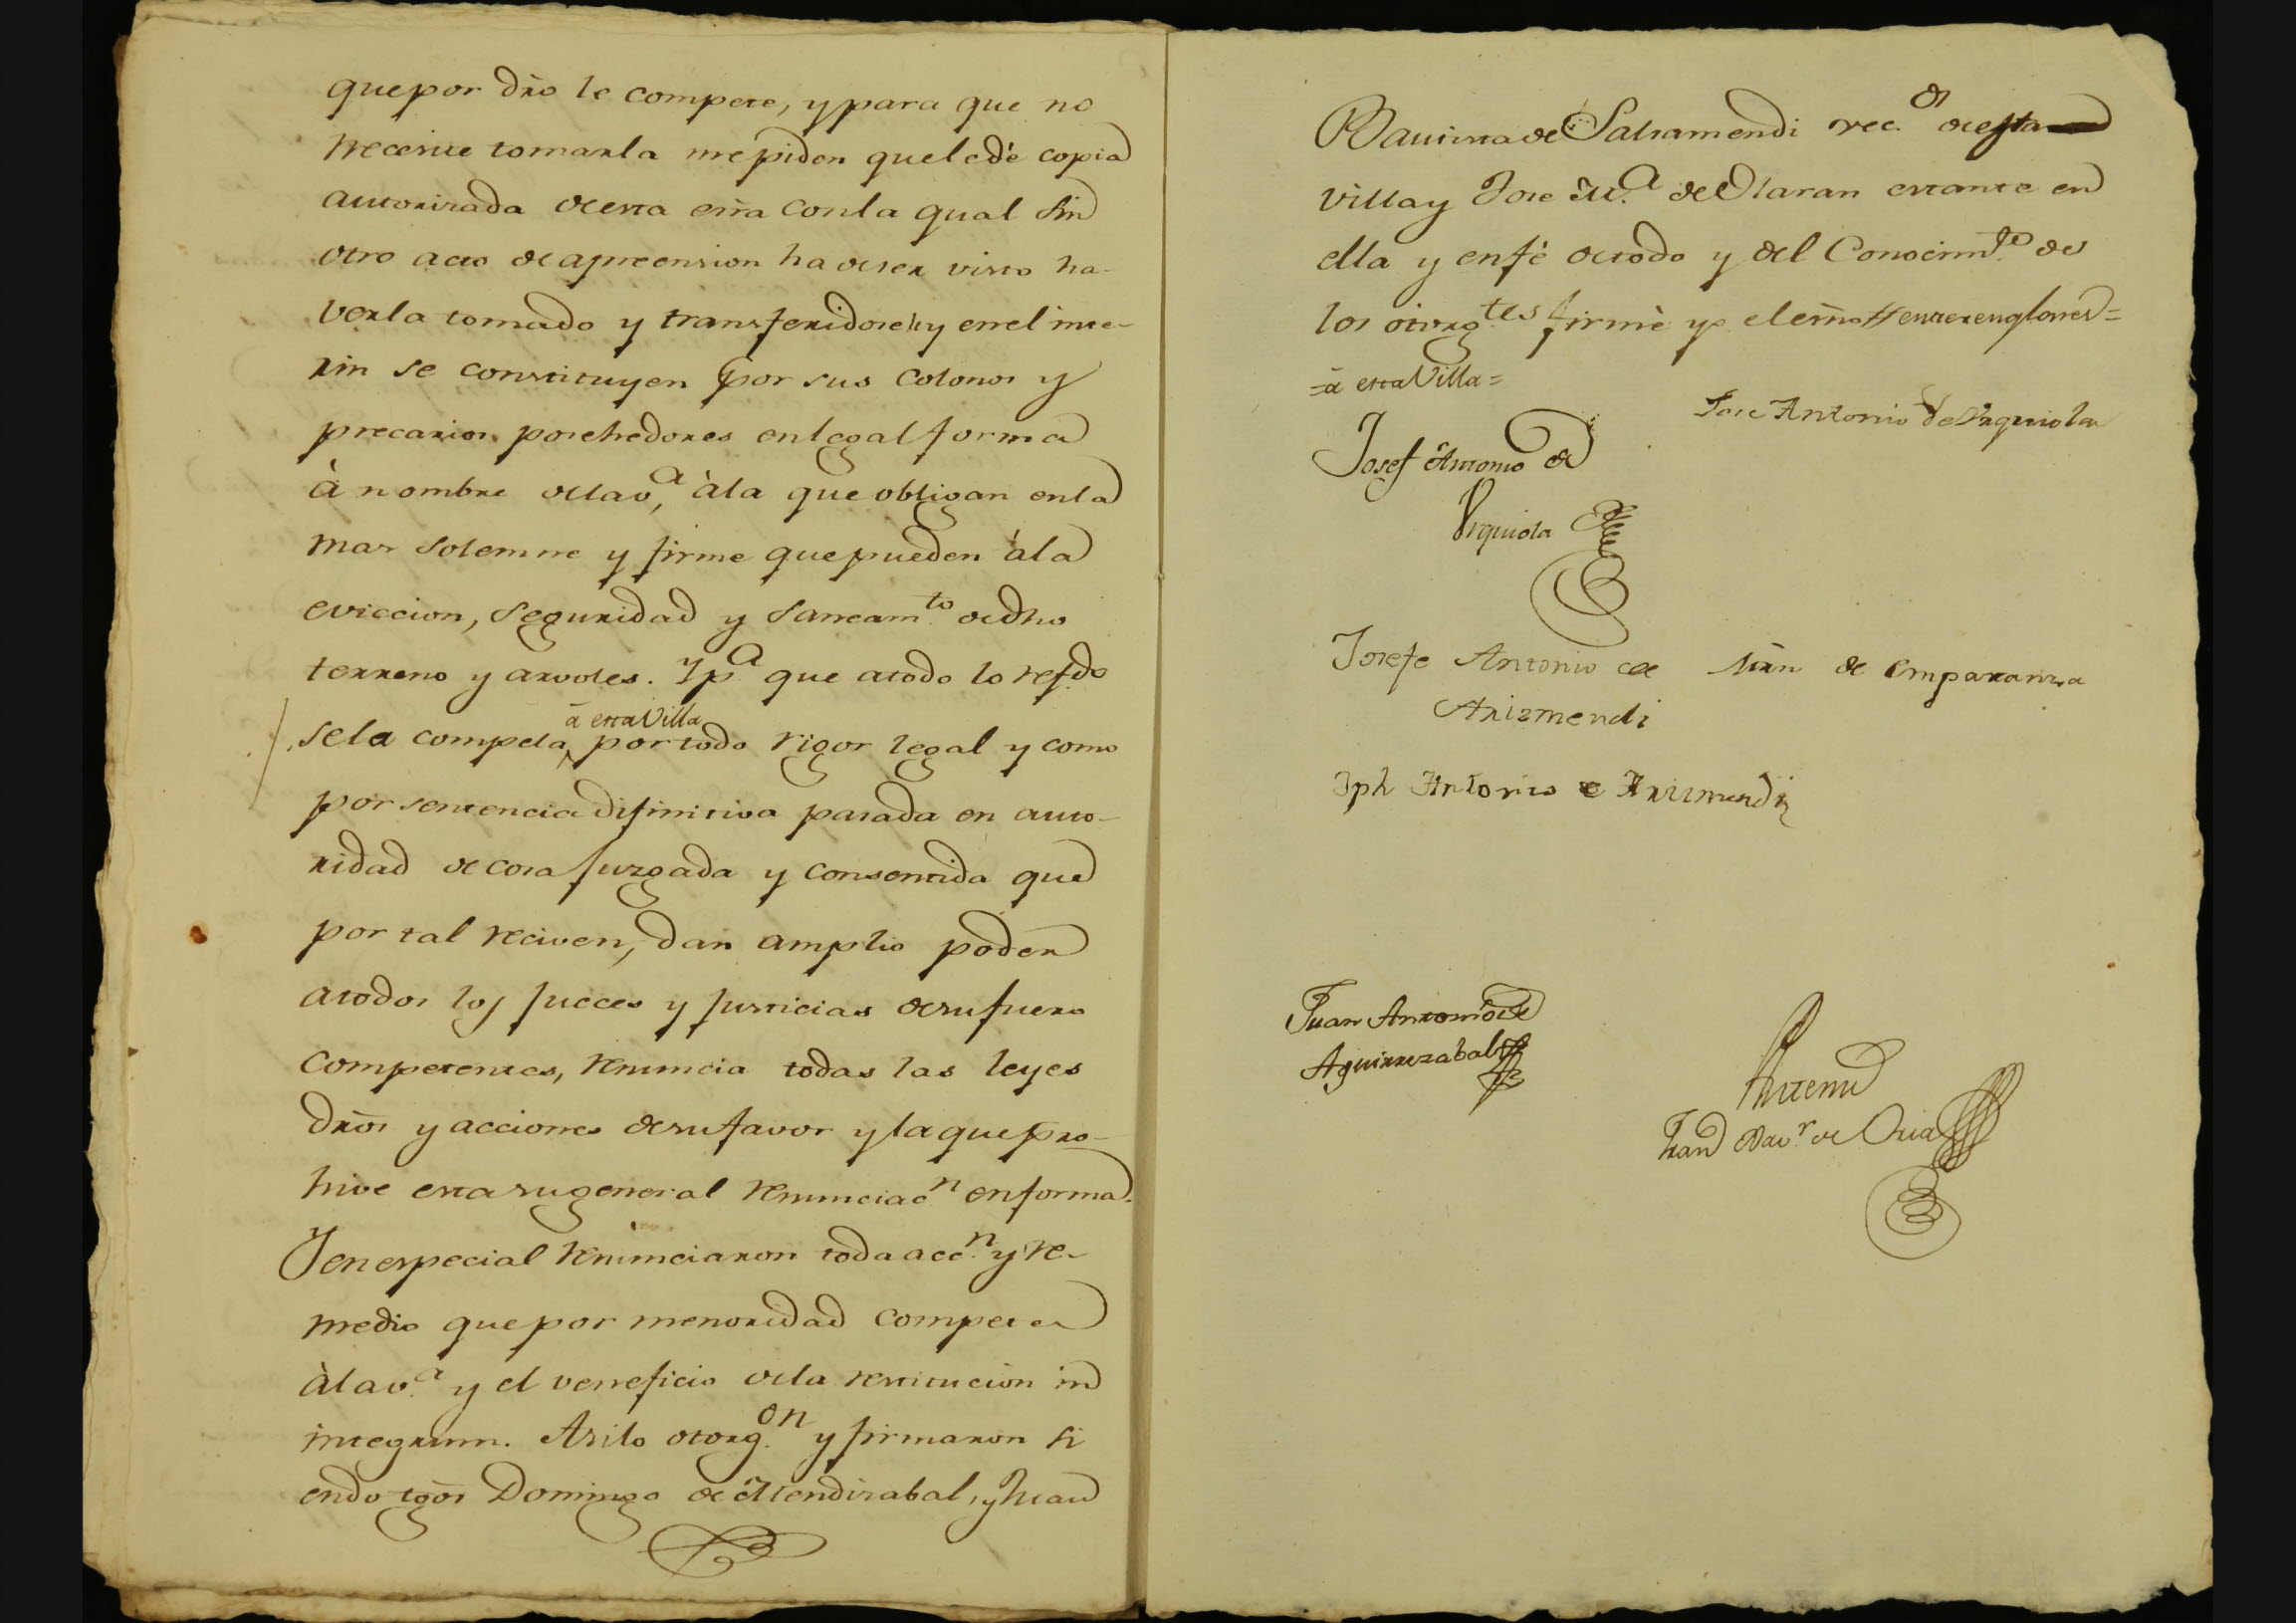 que por dr̃o le compete, y para que no
necesite tomarla me piden que le dè copia
autorizada de esta esr̃a con la qual sin
otro acto de apreension ha de ser visto ha-
verla tomado y transferidosele y en el inte-
rin se constituyen por sus Colonos y
precarios posehedores en legal forma
à nombre de la v.ª, à la que obligan en la
mas solemne y firme que pueden à la
eviccion, seguridad y saneam.to de dho
terreno y arvoles. Y p.ª que a todo lo ref.do
â esta Villa
se la compela por todo rigor legal y como
por sentencia difinitiva pasada en auto-
ridad de cosa juzgada y consentida que
por tal reciven, dan amplio poder
a todos los Jueces y Justicias de su fuero
competentes, renuncia todas las leyes
dr̃os y acciones de su favor y la que pro-
hive esta su general renunciac.n en forma.
Y en especial renunciaron toda acc.n y re-
medio que por menoridad compete
à la v.ª y el veneficio de la restitucion in
integrum. Asi lo otorg.on y firmaron si
endo tgõs Domingo de Mendizabal, y Juan
Bautista de Salsamendi vec.os de esta
Villa y Jose M.ª de Olaran estante en
ella y en fè de todo y del Conocim.to de
los otorg.tes firmè yo el esñoˉ // entrerenglones =
= â esta Villa =
Jose Antonio de Urquiola
Josef Antonio de
Urquiola
Josefe Antonio de
Arizmendi
Jũan de Emparanza
Jph Antonio e Arizmendi
Juan Antonio de
Aguirrezabal
Antemi
Fran.co Xav.r de Oria